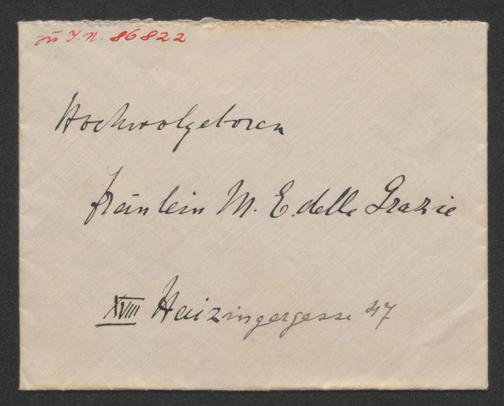 zu I.N. 86822
Hochwolgeboren
Fräulein M. E. delle Grazie
XVIII Haizingergasse 47